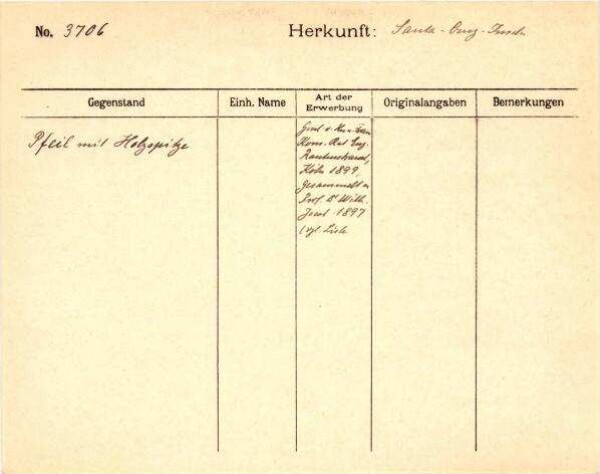 No. 3706 Herkunft: Santa-Cruz-Inseln
Gegenstand Einh. Name Art der Erwerbung Originalangaben Bemerkungen
Pfeil mit Holzspitze
Kom. Rat Eug.
Rautenstrauch,
Köln 1899,
Gesammelt v.
Prof. Dr Wilh.
Joest 1897
(vgl. Liste